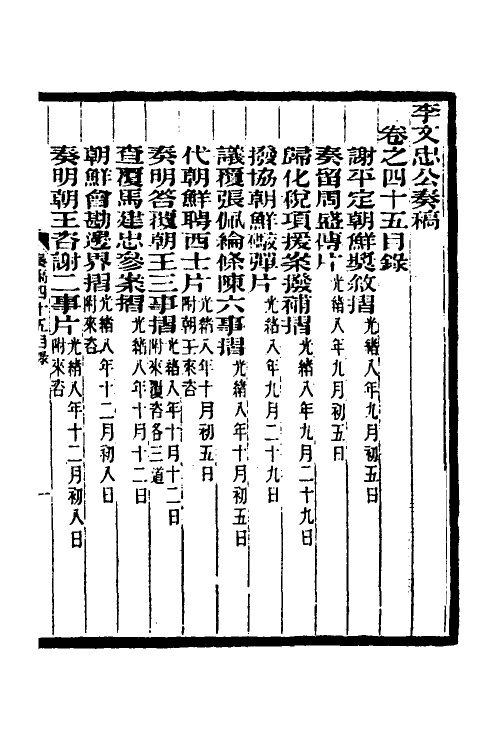 李文忠公奏稿
卷之四十五目錄
謝平定朝鮮奬敘摺光緒八年九月初五日
奏留周盛傳片光緒八年九月初五日
歸化倪項援案撥補摺光緒八年九月二十九日
撥協朝鮮礮彈片光緒八年九月二十九日
議覆張佩綸條陳六事摺光緒八年十月初五日
代朝鮮聘西士片光緒八年十月初五日附朝王來咨
奏明答覆朝王三事摺光緒八年十月十二日附來覆咨各三道
查覆馬建忠參案摺光緒八年十月十二日
朝鮮會勘邊界摺光緒八年十二月初八日附來咨
奏明朝王咨謝二事片光緒八年十二月初八日附來咨
奏稿四十五目錄
一